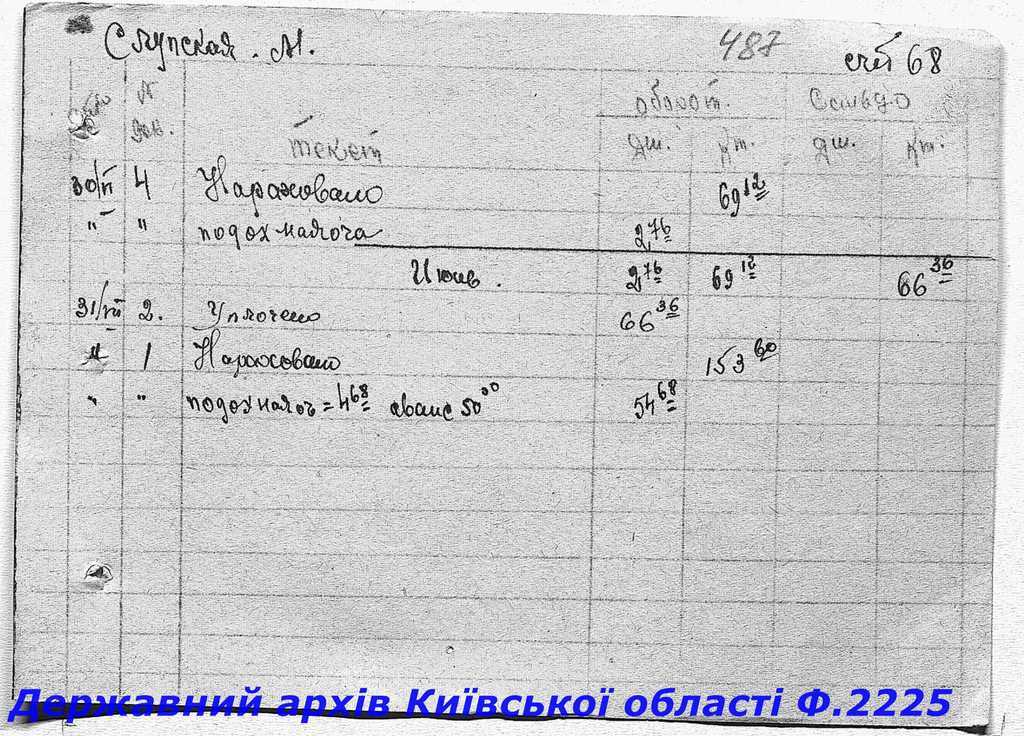 Слупская. М. 487 счёт 68
№ оборот. Сальдо
док. текст дт. кт. дт. кт.
30/VI 4 Нараховано 69 12
" " подох налога 2 76
Июнь. 2 76 69 12 66 36
31/VII 2. Уплочено 66 36
" 1 Нараховано 153 60
" " подох налог = 4 68 аванс 50 00 54 68
Державний архів Київської області Ф.2225